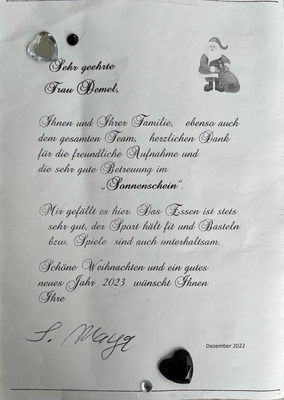 Sehr geehrte
Frau Demel,
Ihnen und Ihrer Familie, ebenso auch
dem gesamten Team, herzlichen Dank
für die freundliche Aufnahme und
die sehr gute Betreuung im
„Sonnenschein“.
Mir gefällt es hier. Das Essen ist stets
sehr gut, der Sport hält fit und Basteln
bzw. Spiele sind auch unterhaltsam.
Schöne Weihnachten und ein gutes
neues Jahr 2023 wünscht Ihnen
Ihre
Dezember 2022